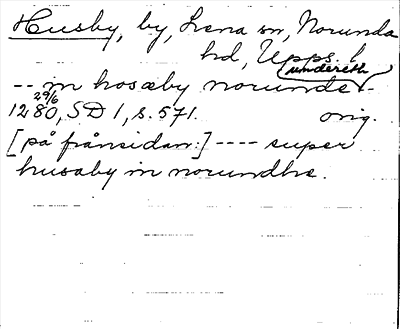 Husby, by, Lena sn, Norunda
hd, Upps. l.
undereth
-- in hosæby norunde-
29/6
1280, SD 1, s. 571. orig.
[på frånsidan:] ---- super
husaby in norundhe.